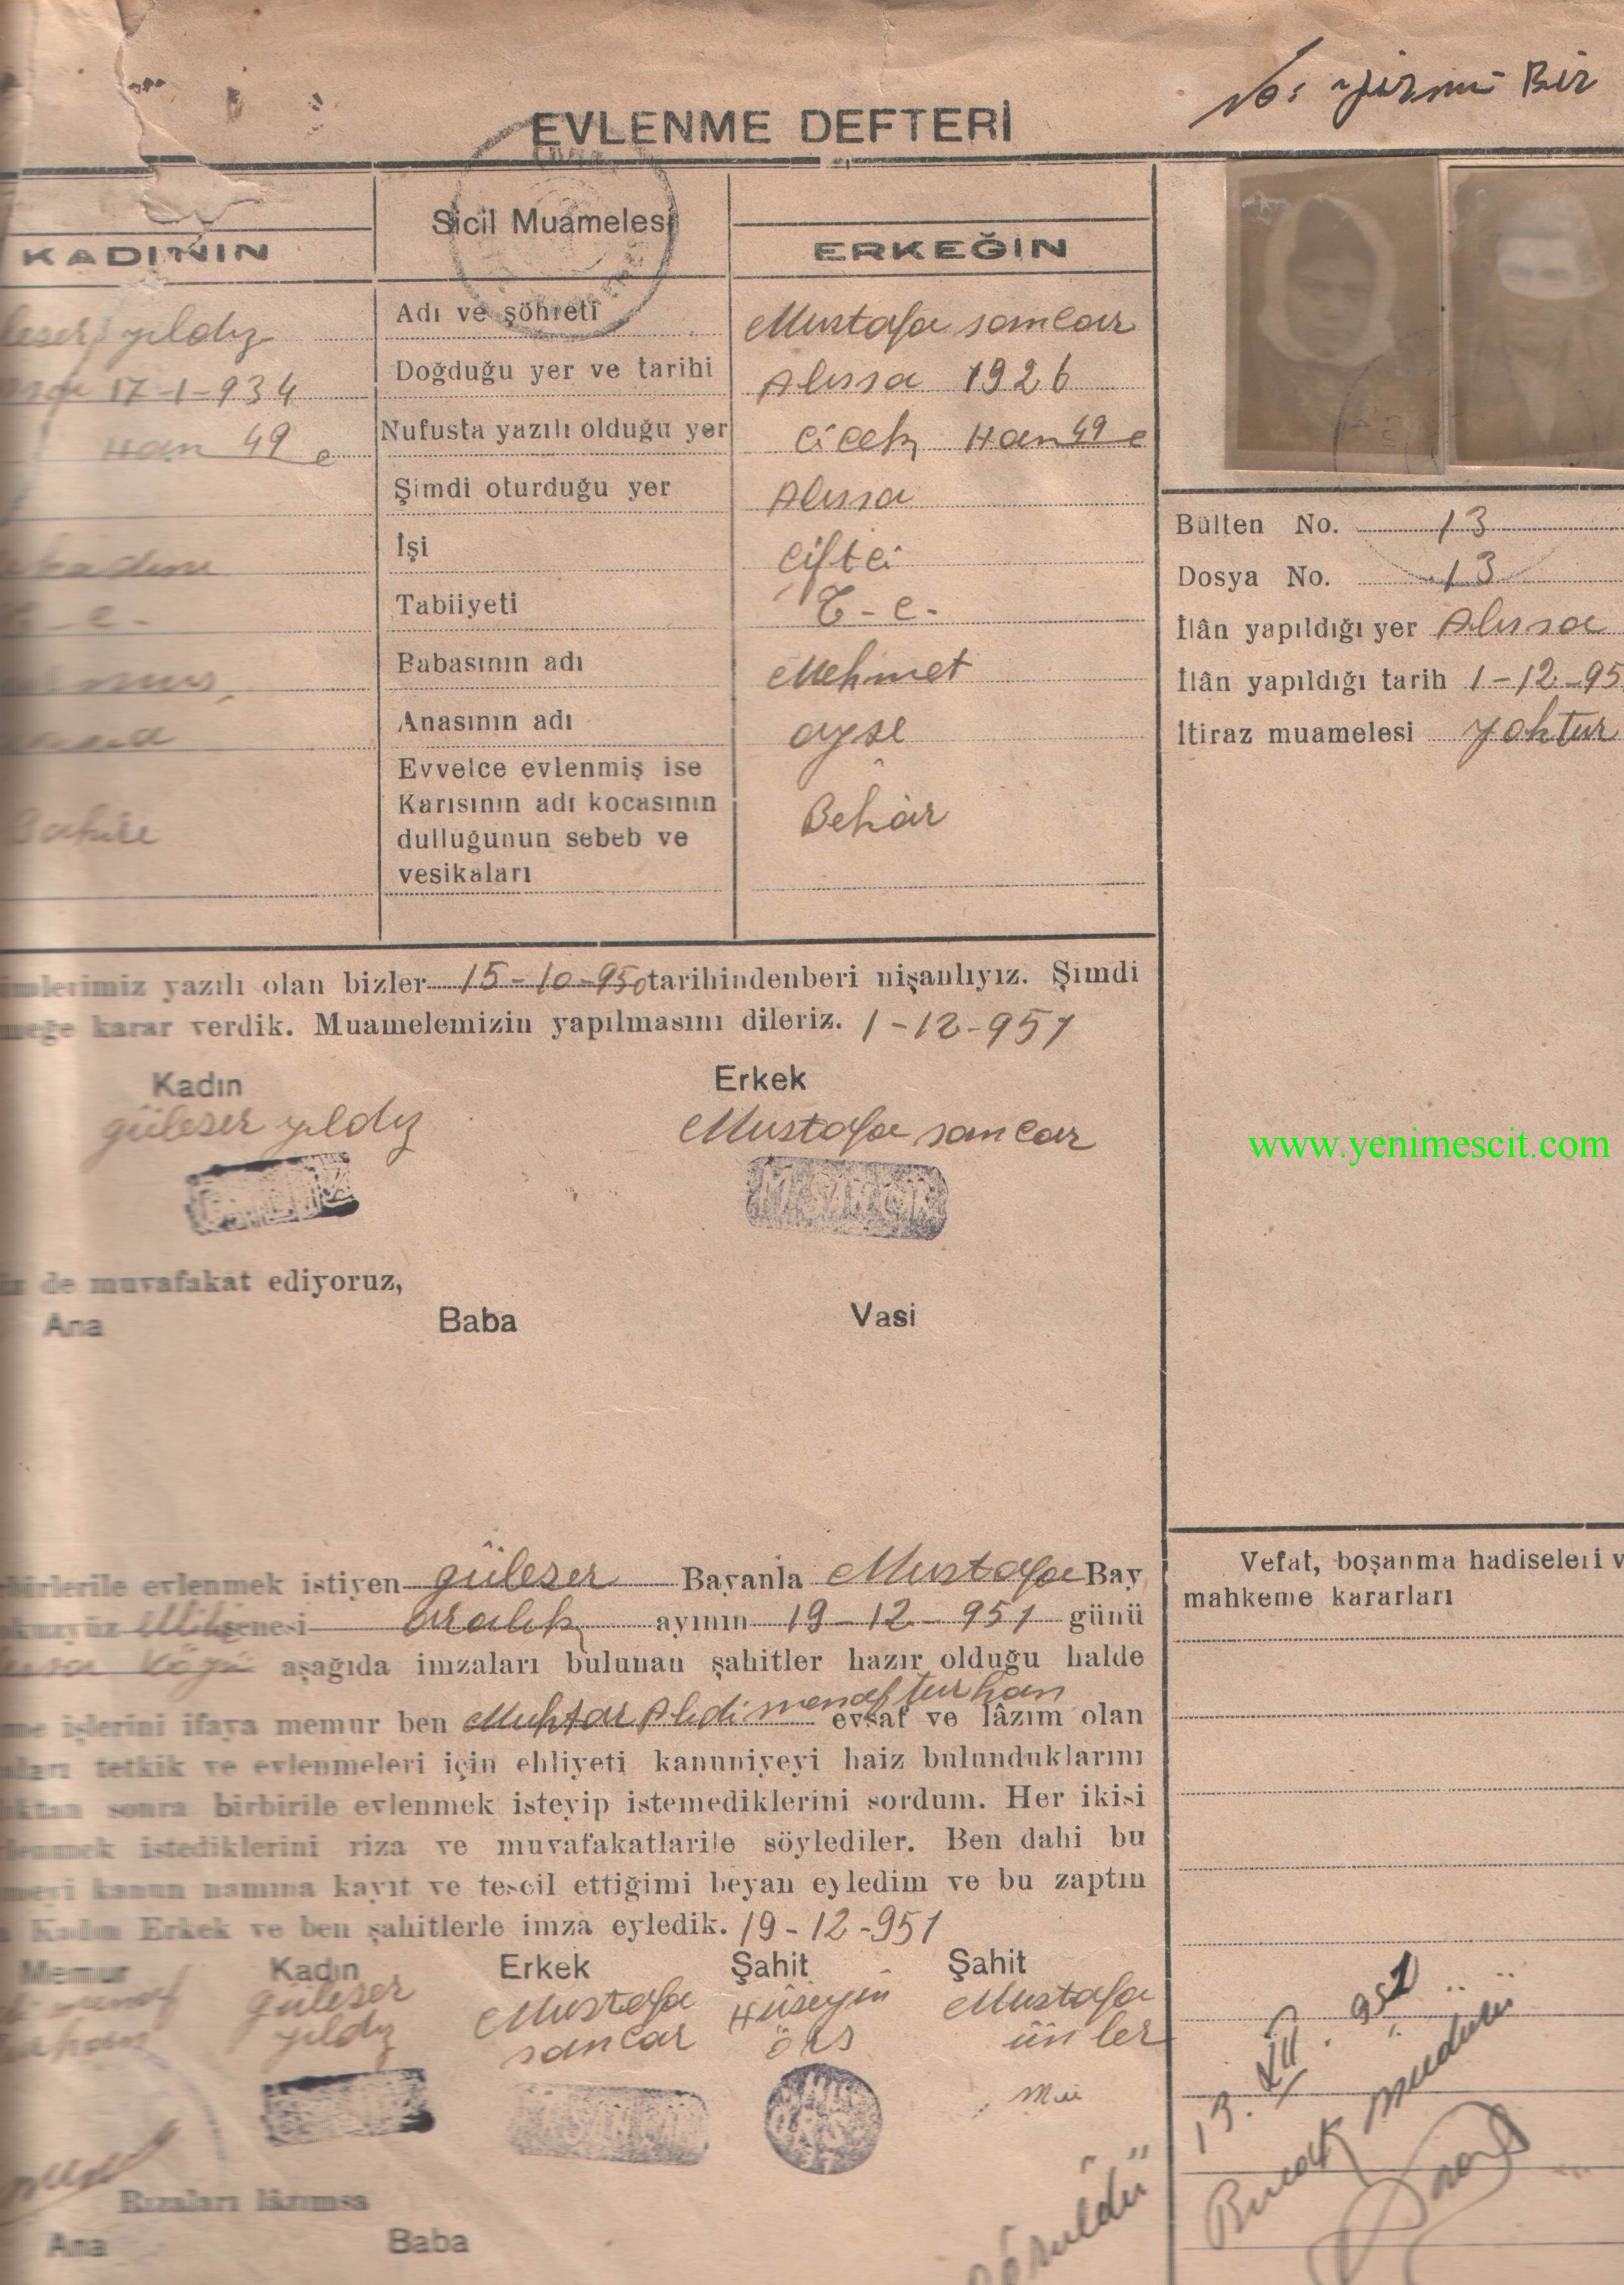 No: Yirmi Bir
EVLENME DEFTERİ
KADININ
Sicil Muamelesi
ERKEĞİN
yıldız
Adı ve şöhreti
Mustafa sancar
17-1-934
Doğduğu yer ve tarihi
Alısa 1926
Han 49
Nufusta yazılı olduğu yer
Cicek Han 49
Şimdi oturduğu yer
Alısa
İşi
Ciftci
T-C-
Tabiiyeti
T-C-
Babasının adı
Mehmet
Anasının adı
ayse
Bahire
Evvelce evlenmiş ise
Karısının adı kocasının
dulluğunun sebeb ve
vesikaları
Behâr
Bülten No. 13
Dosya No. 13
İlân yapıldığı yer Alısa
İlân yapıldığı tarih 1-12-95
İtiraz muamelesi yoktur
yazılı olan bizler 15-10-950 tarihindenberi nişanlıyız. Şimdi
karar verdik. Muamelemizin yapılmasını dileriz. 1-12-951
Kadın
Erkek
güleser yıldız
Mustafa sancar
www.yenimescit.com
de muvafakat ediyoruz,
Ana
Baba
Vasi
evlenmek istiyen güleser Bayanla Mustafa Bay
senesi aralık ayının 19-12-951 günü
Köyü aşağıda imzaları bulunan şahitler hazır olduğu halde
işlerini ifaya memur ben Muhtar Abdi menaf turhan evsaf ve lâzım olan
tetkik ve evlenmeleri için ehliyeti kanuniyeyi haiz bulunduklarını
sonra birbirile evlenmek isteyip istemediklerini sordum. Her ikisi
istediklerini riza ve muvafakatlarile söylediler. Ben dahi bu
kanun namına kayıt ve tescil ettiğimi beyan eyledim ve bu zaptın
Kadın Erkek ve ben şahitlerle imza eyledik. 19-12-951
Memur
Kadın
Erkek
Şahit
Şahit
güleser
yıldız
Mustafa
sancar
Hüseyin
örs
Mustafa
ünler
Rızaları lâzımsa
Ana
Baba
Vefat, boşanma hadiseleri v
mahkeme kararları
Görüldü
13.XII.951
Bucak müdürü